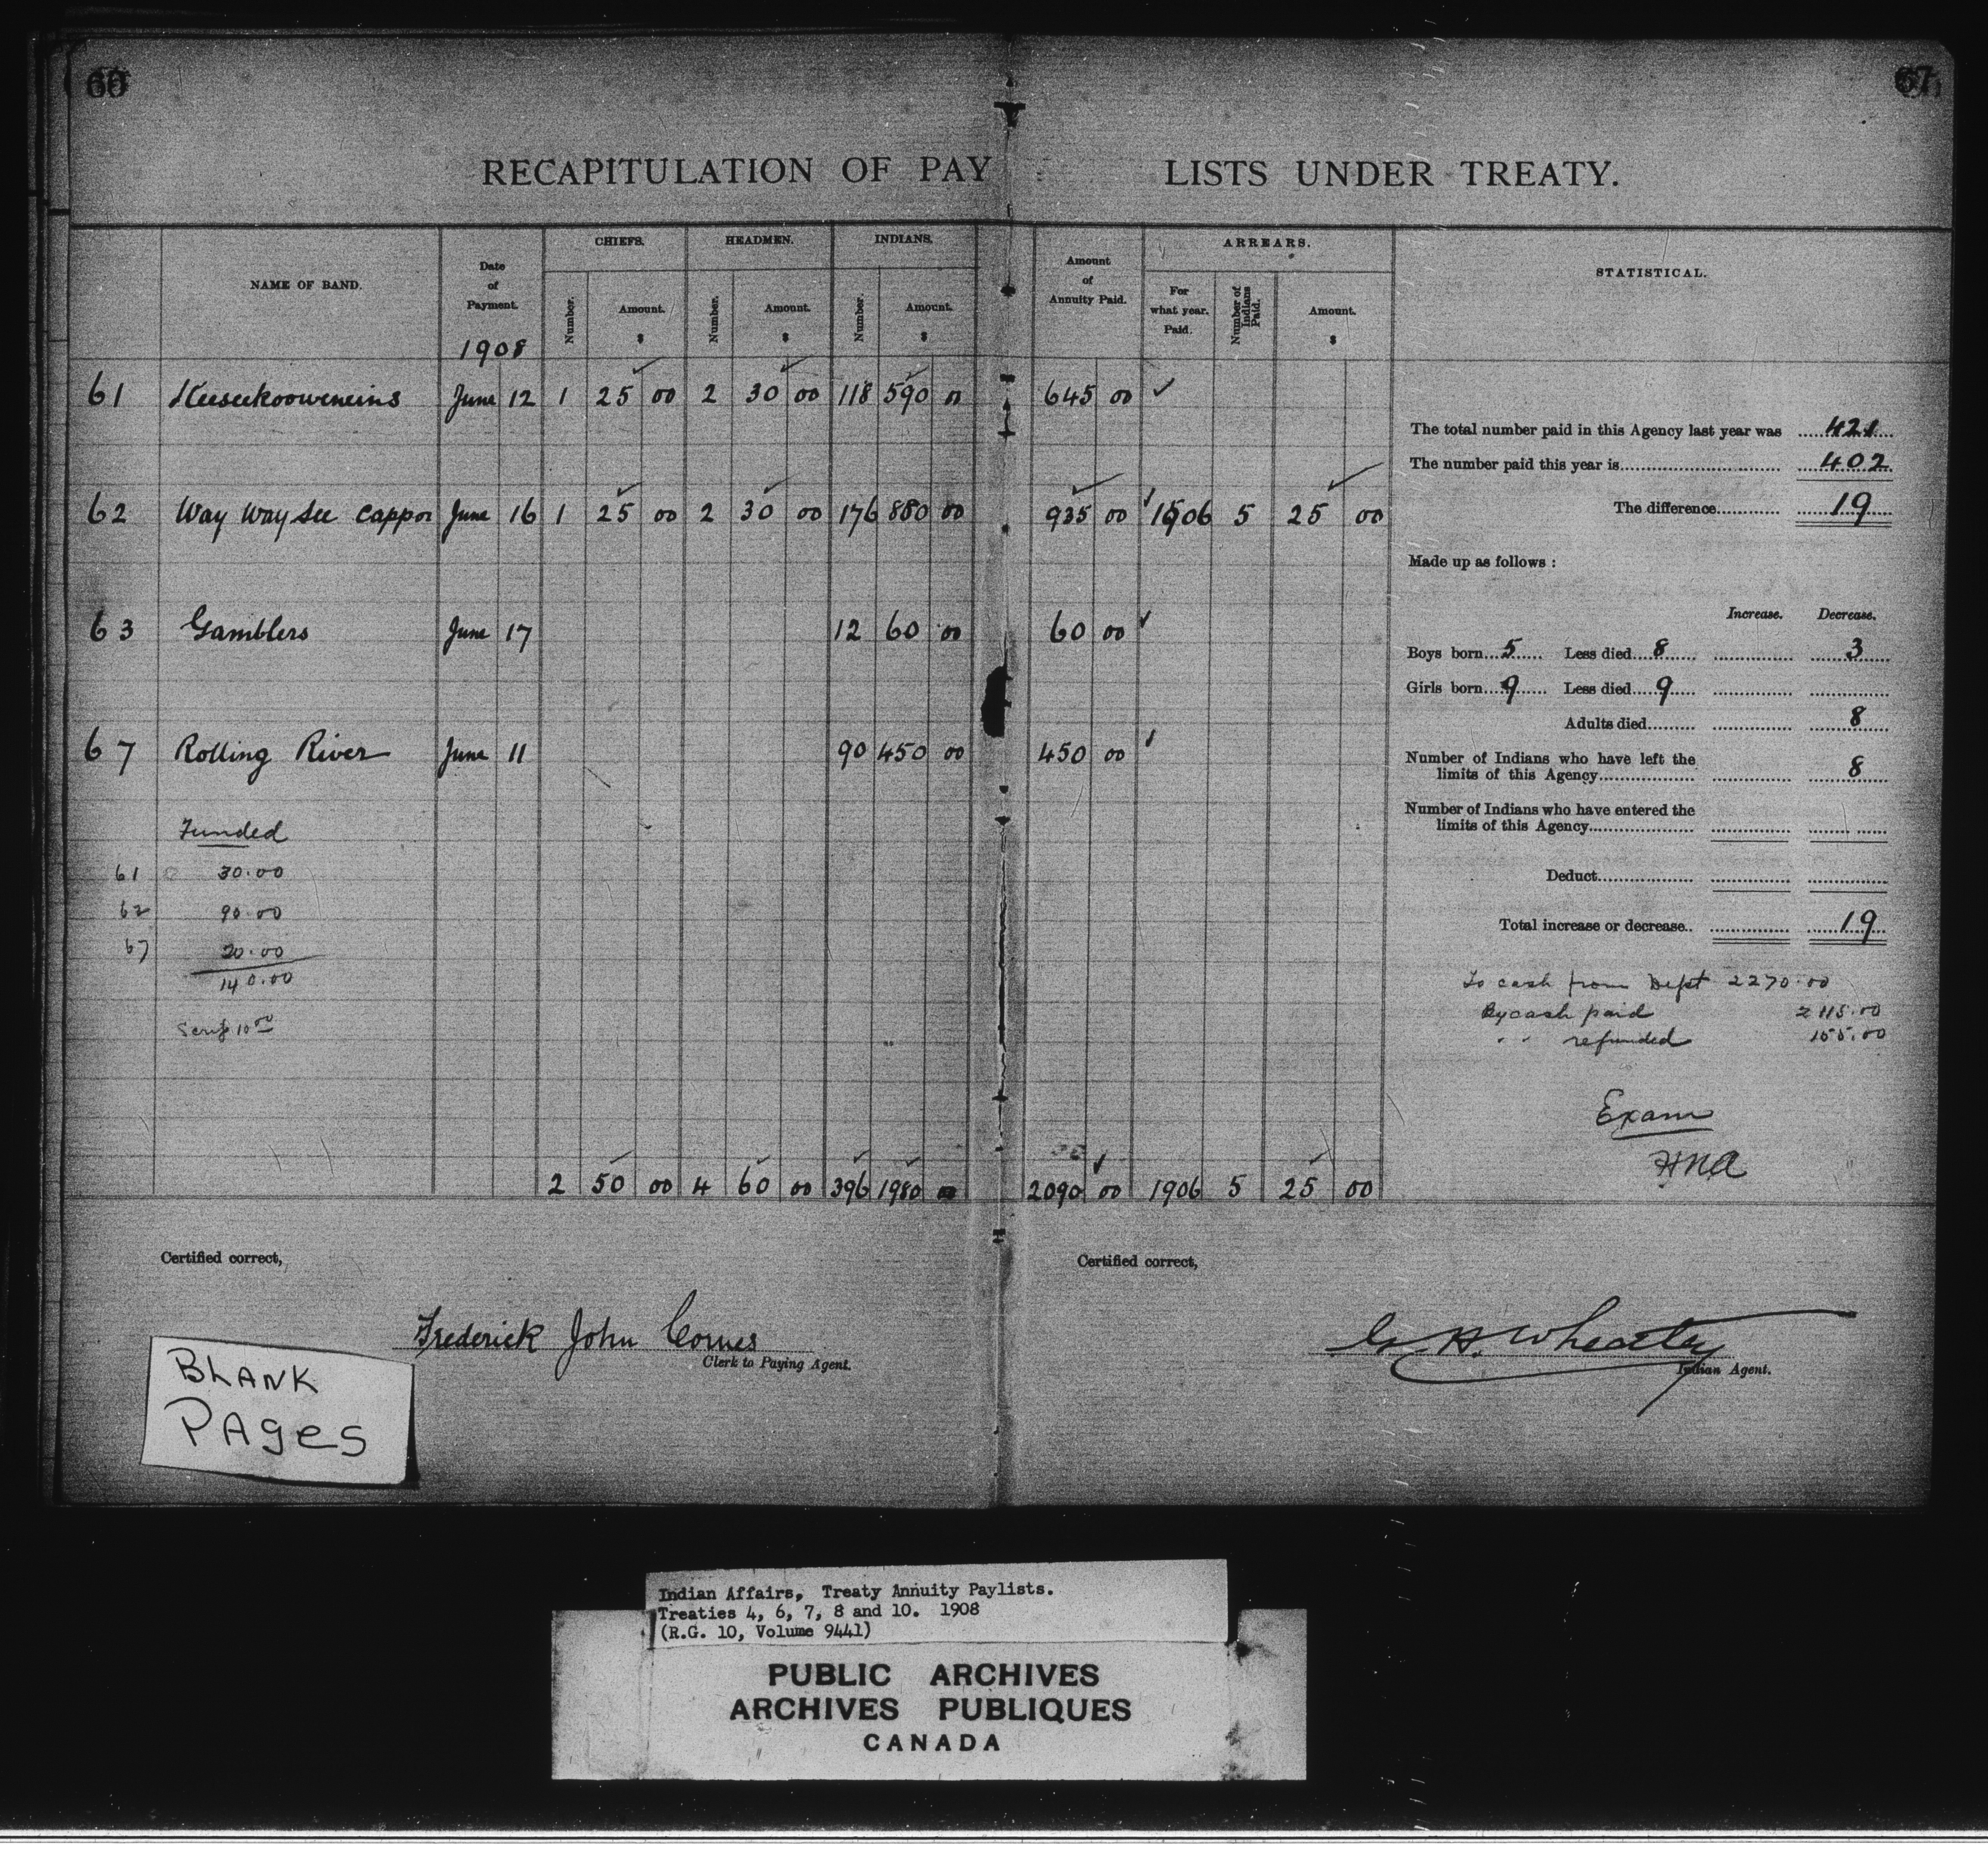 60
67
RECAPITULATION OF PAY LISTS UNDER TREATY.
NAME OF BAND.
Date of Payment.
1908
CHIEFS.
Number.
Amount.
$
HEADMEN.
Number.
Amount.
$
INDIANS.
Number.
Amount.
$
Amount of Annuity Paid.
ARREARS.
For what year. Paid.
Number of Indians Paid.
Amount.
$
STATISTICAL.
61 Keeseekooweneins June 12 1 25 00 2 30 00 118 590 00 645 00
62 Way Way See Cappo June 16 1 25 00 2 30 00 176 880 00 935 00 1906 5 25 00
63 Gamblers June 17 12 60 00 60 00
67 Rolling River June 11 90 450 00 450 00
Funded
61 30.00
62 90.00
67 20.00
140.00
Scrip 10 00
2 50 00 4 60 00 396 1980 00 2090 00 1906 5 25 00
The total number paid in this Agency last year was 421
The number paid this year is 402
The difference 19
Made up as follows :
Increase. Decrease.
Boys born 5 Less died 8 3
Girls born 9 Less died 9
Adults died 8
Number of Indians who have left the
limits of this Agency 8
Number of Indians who have entered the
limits of this Agency
Deduct
Total increase or decrease.. 19
To cash from Dept 2270.00
By cash paid 2115.00
" " refunded 155.00
Exam
HNA
Certified correct,
Frederick John Cornes
Clerk to Paying Agent.
Certified correct,
G. H. Wheatley
Indian Agent.
BLANK
PAges
Indian Affairs, Treaty Annuity Paylists.
Treaties 4, 6, 7, 8 and 10. 1908
(R.G. 10, Volume 9441)
PUBLIC ARCHIVES
ARCHIVES PUBLIQUES
CANADA